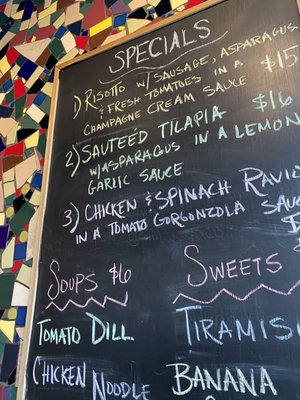 SPECIALS
1) RISOTTO W/ SAUSAGE, ASPARAGUS
& FRESH TOMATOES IN A $15
CHAMPAGNE CREAM SAUCE
2) SAUTEÉD TILAPIA $16
W/ASPARAGUS IN A LEMON
GARLIC SAUCE
3) CHICKEN & SPINACH RAVIO
IN A TOMATO GORGONZOLA SAUC
SOUPS $6
TOMATO DILL
CHICKEN NOODLE
SWEETS $
TIRAMIS
BANANA